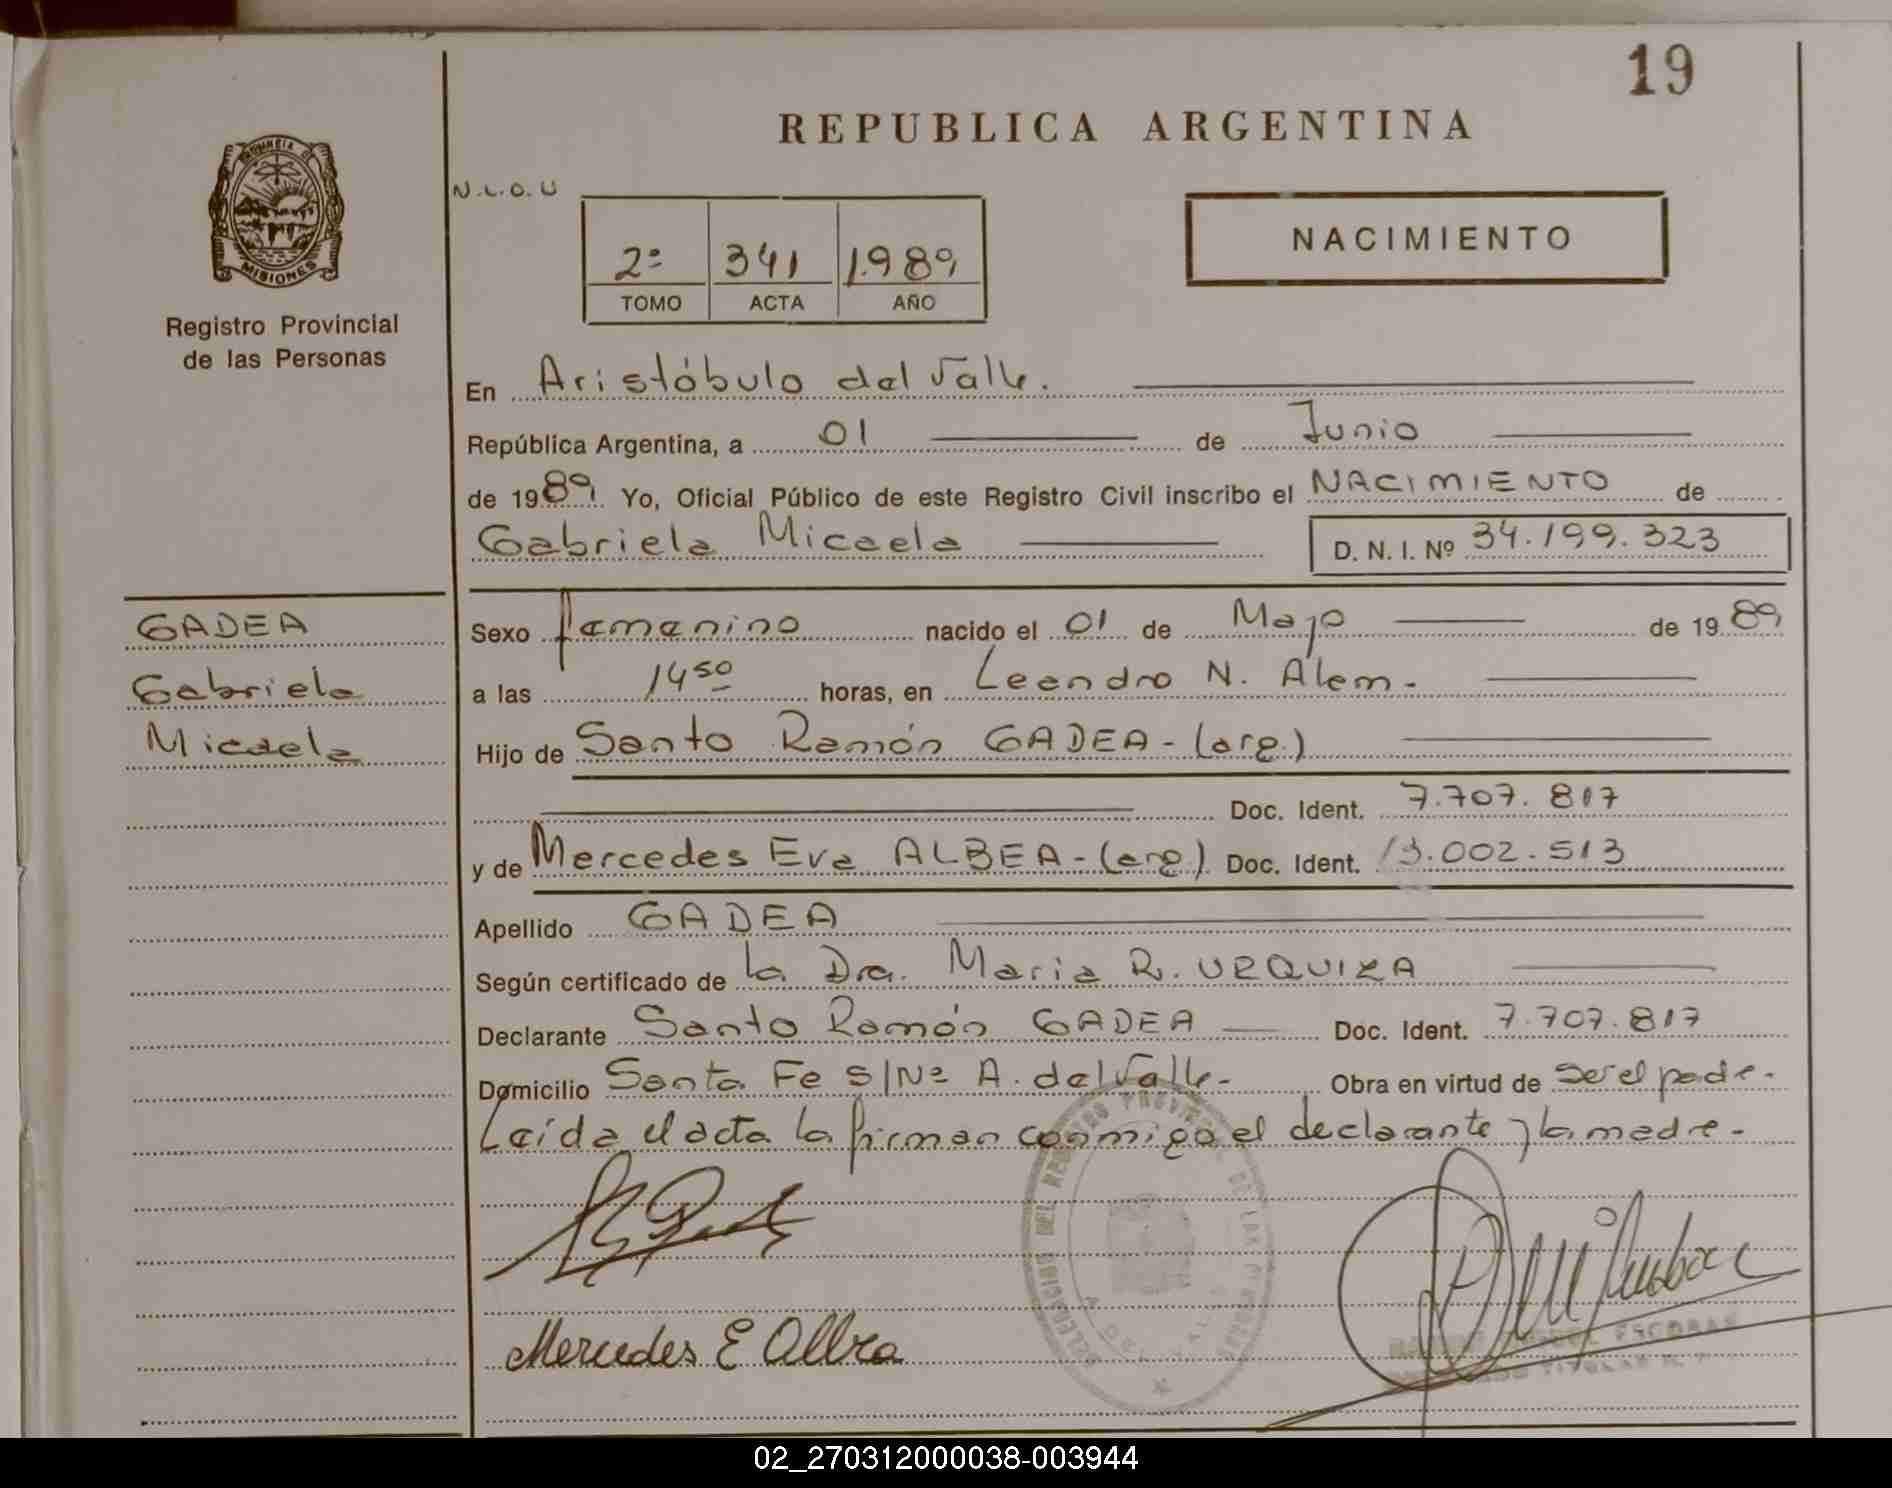 19
REPUBLICA ARGENTINA
PROVINCIA D
MISIONES
Registro Provincial
de las Personas
N.L.O.U
2º 341 1.989
TOMO ACTA AÑO
NACIMIENTO
En Aristóbulo del Valle.
República Argentina, a 01 de Junio
de 1989. Yo, Oficial Público de este Registro Civil inscribo el NACIMIENTO de
Gabriela Micaela D. N. I. Nº 34.199.323
GADEA
Gabriela
Micaela
Sexo femenino nacido el 01 de Mayo de 1989
a las 14 50 horas, en Leandro N. Alem.
Hijo de Santo Ramón GADEA - (arg.)
Doc. Ident. 7.707.817
y de Mercedes Eva ALBEA - (arg.) Doc. Ident. 13.002.513
Apellido GADEA
Según certificado de la Dra. Maria R. URQUIZA
Declarante Santo Ramón GADEA Doc. Ident. 7.707.817
Domicilio Santa Fe S/Nº A. del Valle - Obra en virtud de ser el padre.
Leída el acta la firman conmigo el declarante y la madre.
Mercedes E Albea
DEL VALLE
ESCOBAR
TITULAR
02_270312000038-003944